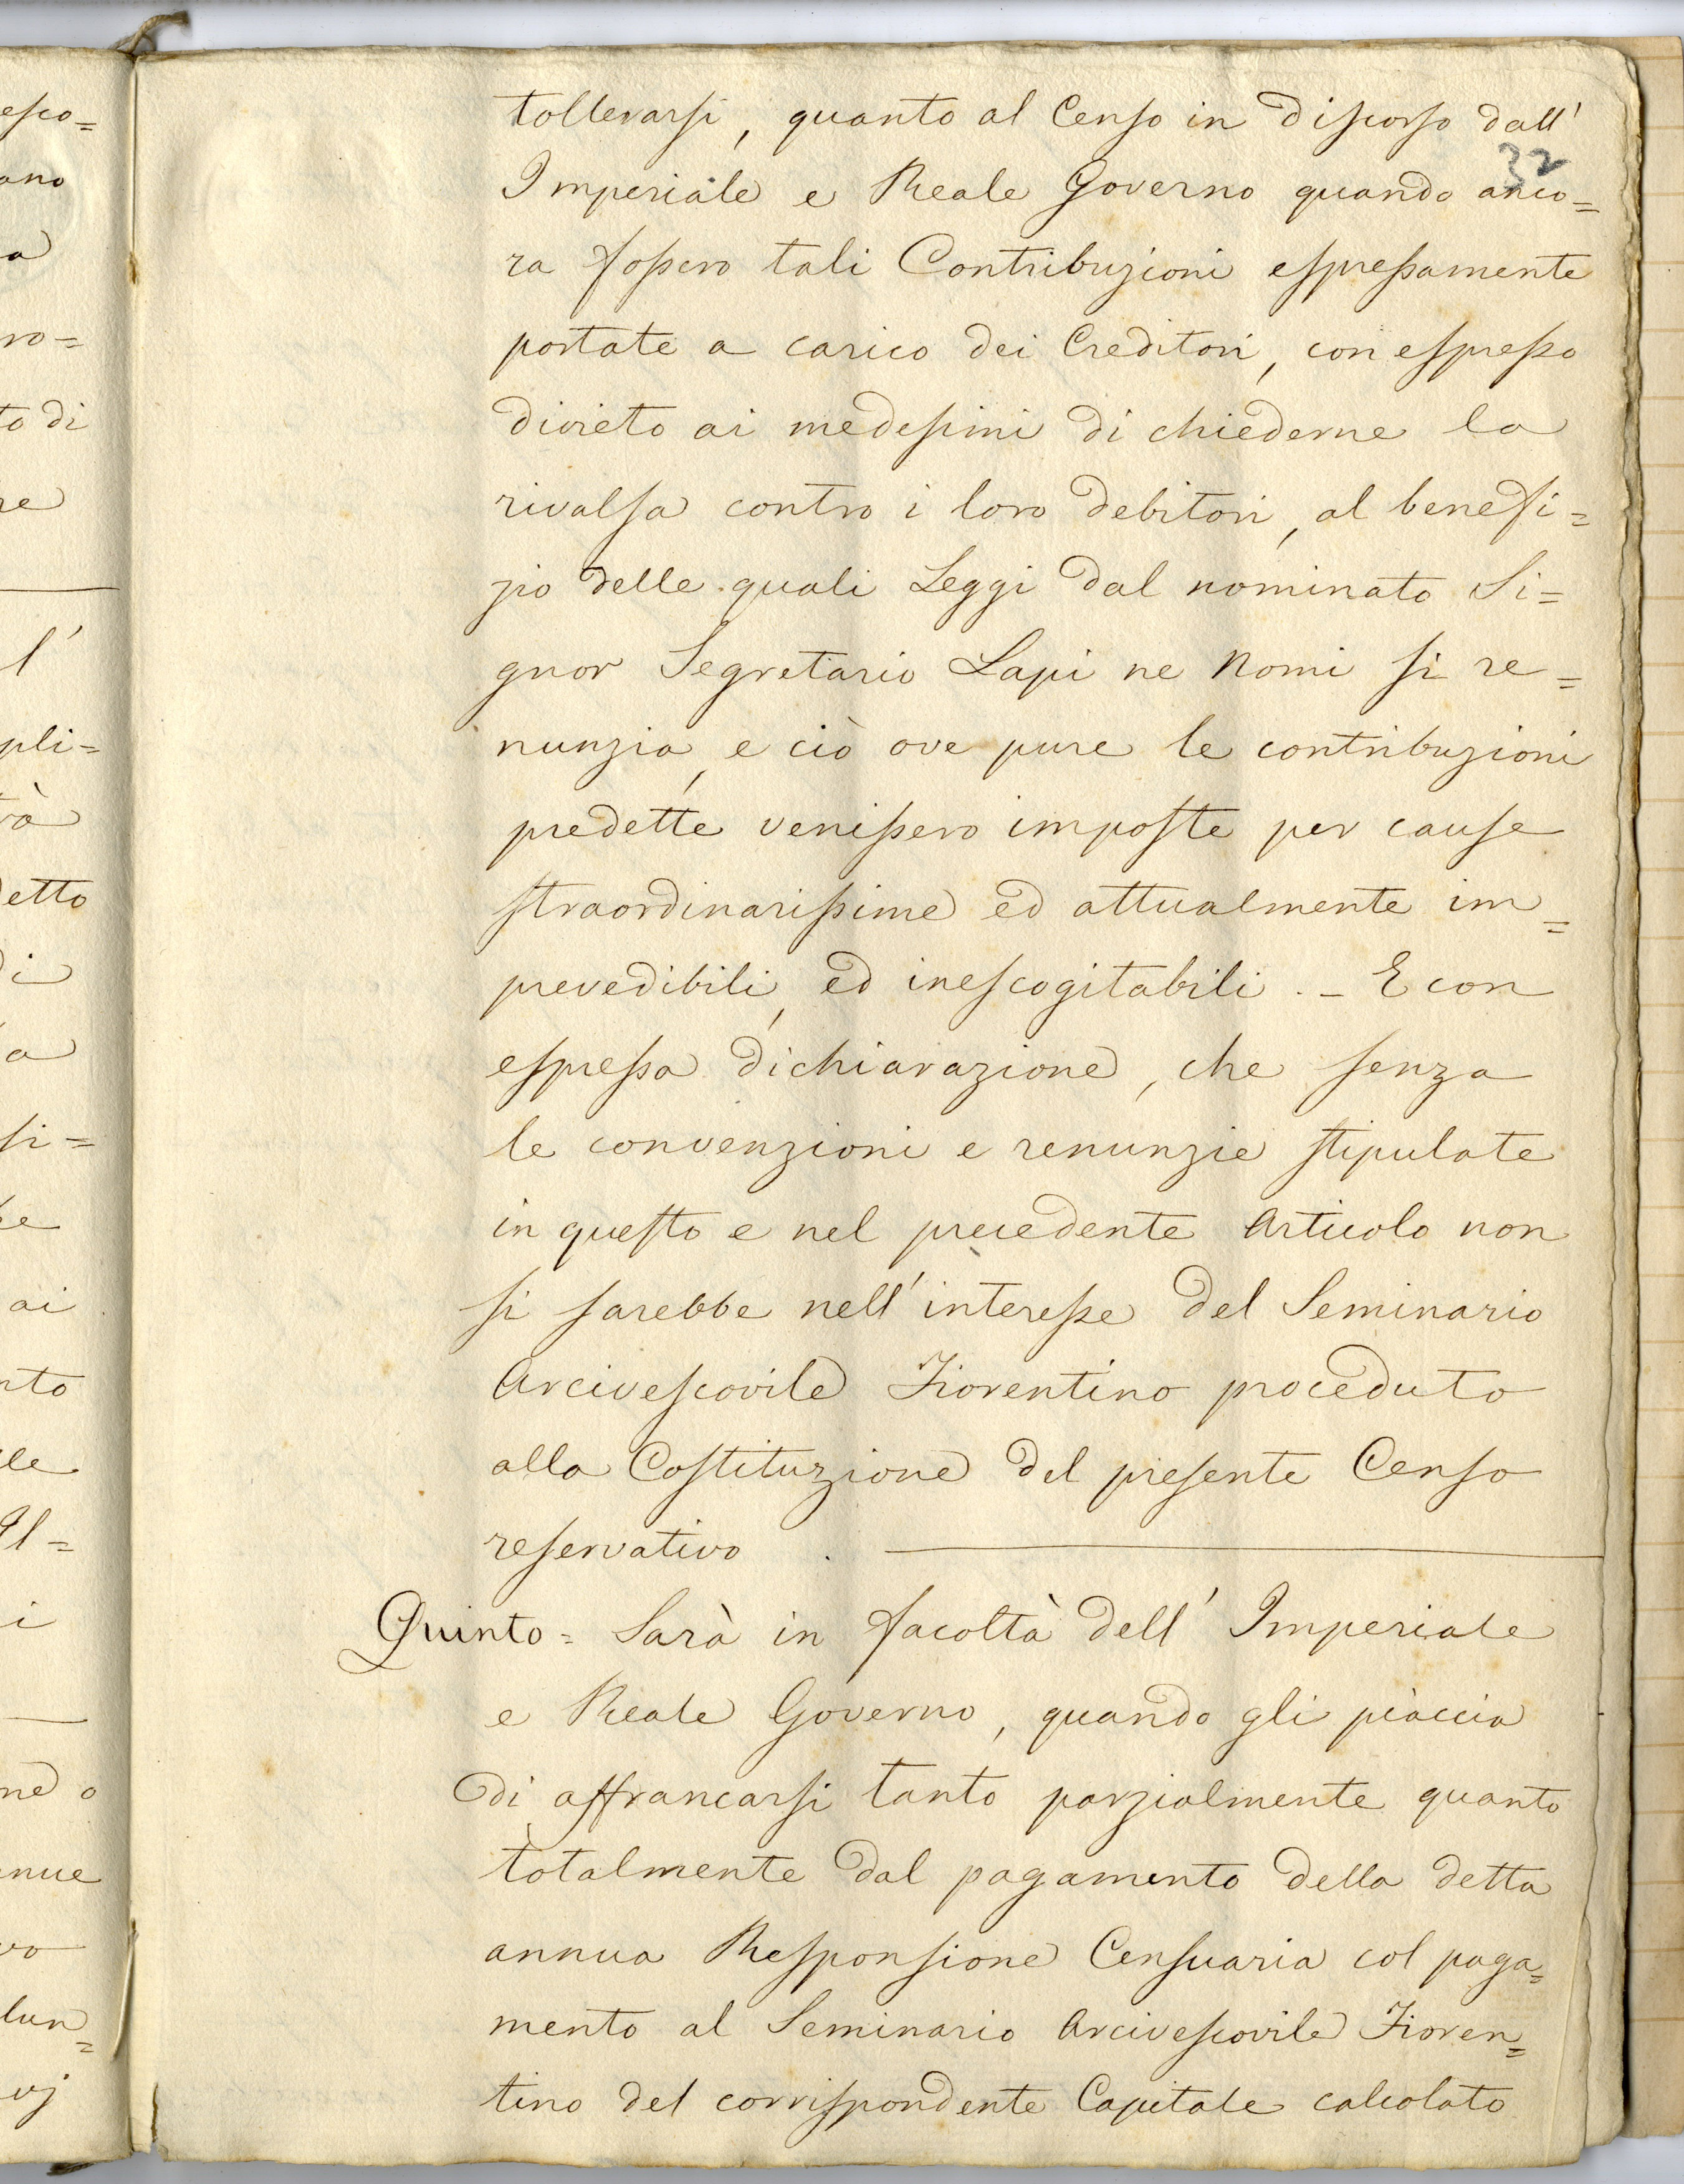 esco=
ano
a
ro=
to di
re
l'
pli=
rà
detto
di
a
si=
be
ai
nto
le
Al=
i
ne o
nue
vo
lun=
vj
32
tollerarsi, quanto al Censo in discorso dall'
Imperiale e Reale Governo quando anco=
ra fossero tali Contribuzioni espressamente
portate a carico dei Creditori, con espresso
divieto ai medesimi di chiederne la
rivalsa contro i loro debitori, al benefi=
zio delle quali Leggi dal nominato Si=
gnor Segretario Lapi ne Nomi si re=
nunzia, e ciò ove pure le contribuzioni
predette venissero imposte per cause
straordinarissime ed attualmente im=
prevedibili, ed inescogitabili. - E con
espressa dichiarazione, che senza
le convenzioni e renunzie stipulate
in questo e nel precedente Articolo non
si sarebbe nell'interesse del Seminario
Arcivescovile Fiorentino proceduto
alla Costituzione del presente Censo
reservativo.
Quinto = Sarà in facoltà dell'Imperiale
e Reale Governo, quando gli piaccia
di affrancarsi tanto parzialmente quanto
totalmente dal pagamento della detta
annua Responsione Censuaria col paga=
mento al Seminario Arcivescovile Fioren=
tino del corrispondente Capitale calcolato